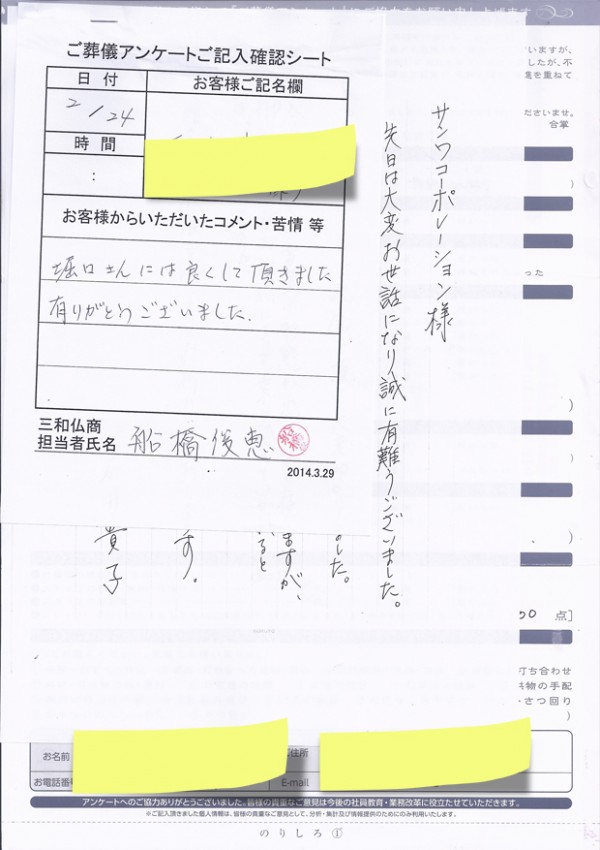 ご葬儀アンケートご記入確認シート
日付
お客様ご記名欄
2/24
時間
:
お客様からいただいたコメント・苦情 等
堀口さんには良くして頂きました
有りがとうございました.
三和仏商
担当者氏名 船橋俊恵
2014.3.29
サンワコーポレーション様
先日は大変お世話になり誠に有難うございました。
した。
ますが、
いると
す。
貴子
いますが、
したが、不
を重ねて
ださいませ。
合掌
)
った
)
)
)
00 点]
打ち合わせ
供物の手配
さつ回り
)
お名前
ご住所
お電話番号
E-mail
アンケートへのご協力ありがとうございました。皆様の貴重なご意見は今後の社員教育・業務改革に役立たせていただきます。
※ご記入頂きました個人情報は、皆様の貴重なご意見として、分析・集計及び情報提供のためにのみ利用いたします。
のりしろ①